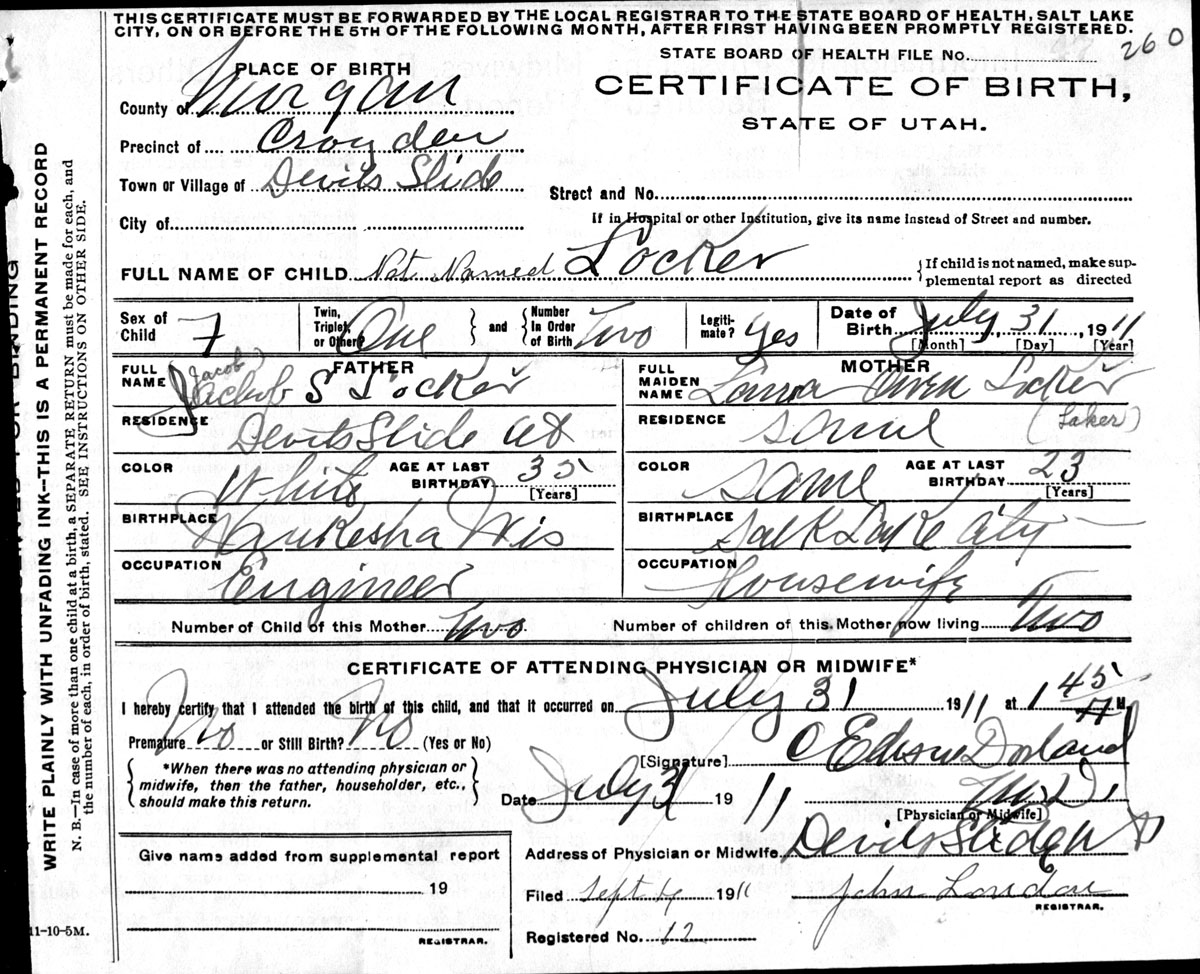 THIS CERTIFICATE MUST BE FORWARDED BY THE LOCAL REGISTRAR TO THE STATE BOARD OF HEALTH, SALT LAKE
CITY, ON OR BEFORE THE 5TH OF THE FOLLOWING MONTH, AFTER FIRST HAVING BEEN PROMPTLY REGISTERED.
STATE BOARD OF HEALTH FILE No. 260
PLACE OF BIRTH
CERTIFICATE OF BIRTH,
STATE OF UTAH.
County of Morgan
Precinct of Croyden
Town or Village of Devils Slide
Street and No.
City of
If in Hospital or other Institution, give its name instead of Street and number.
FULL NAME OF CHILD Not Named Locker
{If child is not named, make sup-
plemental report as directed
Sex of Child F
Twin, Triplet, or Other? One
and
Number In Order of Birth Two
Legiti-mate? Yes
Date of Birth July 31, 1911
[Month] [Day] [Year]
FATHER
FULL NAME Jachob S Locker
(Jacob)
RESIDENCE Devils Slide Ut
COLOR White
AGE AT LAST BIRTHDAY 35
[Years]
BIRTHPLACE Waukesha Wis
OCCUPATION Engineer
MOTHER
FULL MAIDEN NAME Owen Locker
(Laker)
RESIDENCE same
COLOR same
AGE AT LAST BIRTHDAY 23
[Years]
BIRTHPLACE Salt Lake City
OCCUPATION Housewife
Number of Child of this Mother Two
Number of children of this Mother now living Two
CERTIFICATE OF ATTENDING PHYSICIAN OR MIDWIFE*
I hereby certify that I attended the birth of this child, and that it occurred on July 31 1911 at 1 45 M
Premature No or Still Birth? No (Yes or No)
*When there was no attending physician or
midwife, then the father, householder, etc.,
should make this return.
[Signature] C Dorland
M.D.
[Physician or Midwife]
Date July 31 1911
Address of Physician or Midwife Devils Slide
Give name added from supplemental report
19
REGISTRAR.
Filed Sept 1911 John London
REGISTRAR.
Registered No. 12
11-10-5M.
WRITE PLAINLY WITH UNFADING INK—THIS IS A PERMANENT RECORD
N. B.—In case of more than one child at a birth, a SEPARATE RETURN must be made for each, and
the number of each, in order of birth, stated. SEE INSTRUCTIONS ON OTHER SIDE.